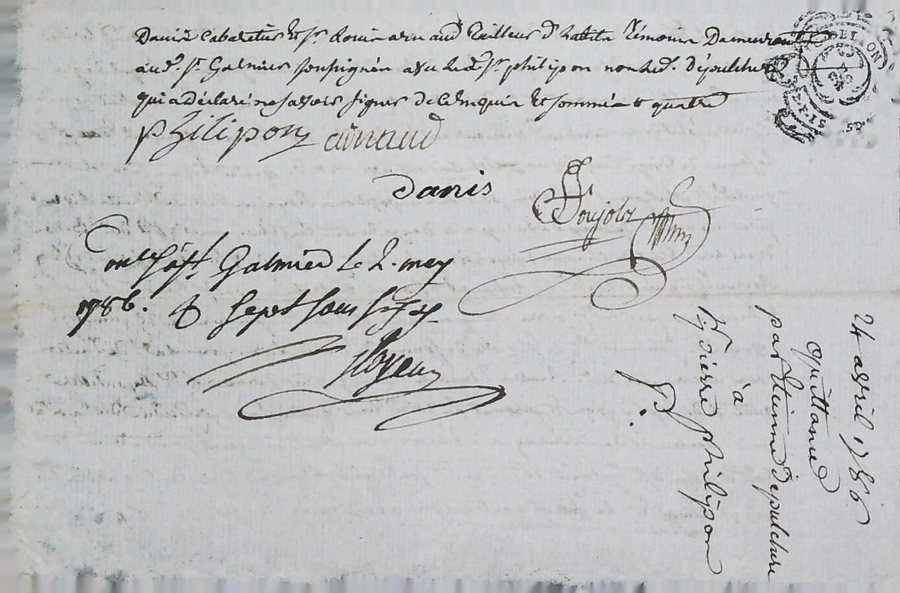 Danis cabaretier & Sr. Louis arnaud Tailleur d'habits témoins demeurants
aud. St. Galmier soussignés avec led. Sr. philipon non led. dépulchre
qui a déclaré ne savoir signer de ce enquis et sommé
philipon arnaud
Danis
Poujols
Con.lé à St. Galmier le 2. may
1786. R sept sous six
24 avril 1786
Quittance
par Etienne dépulchre
à
Sr. Pierre philipon